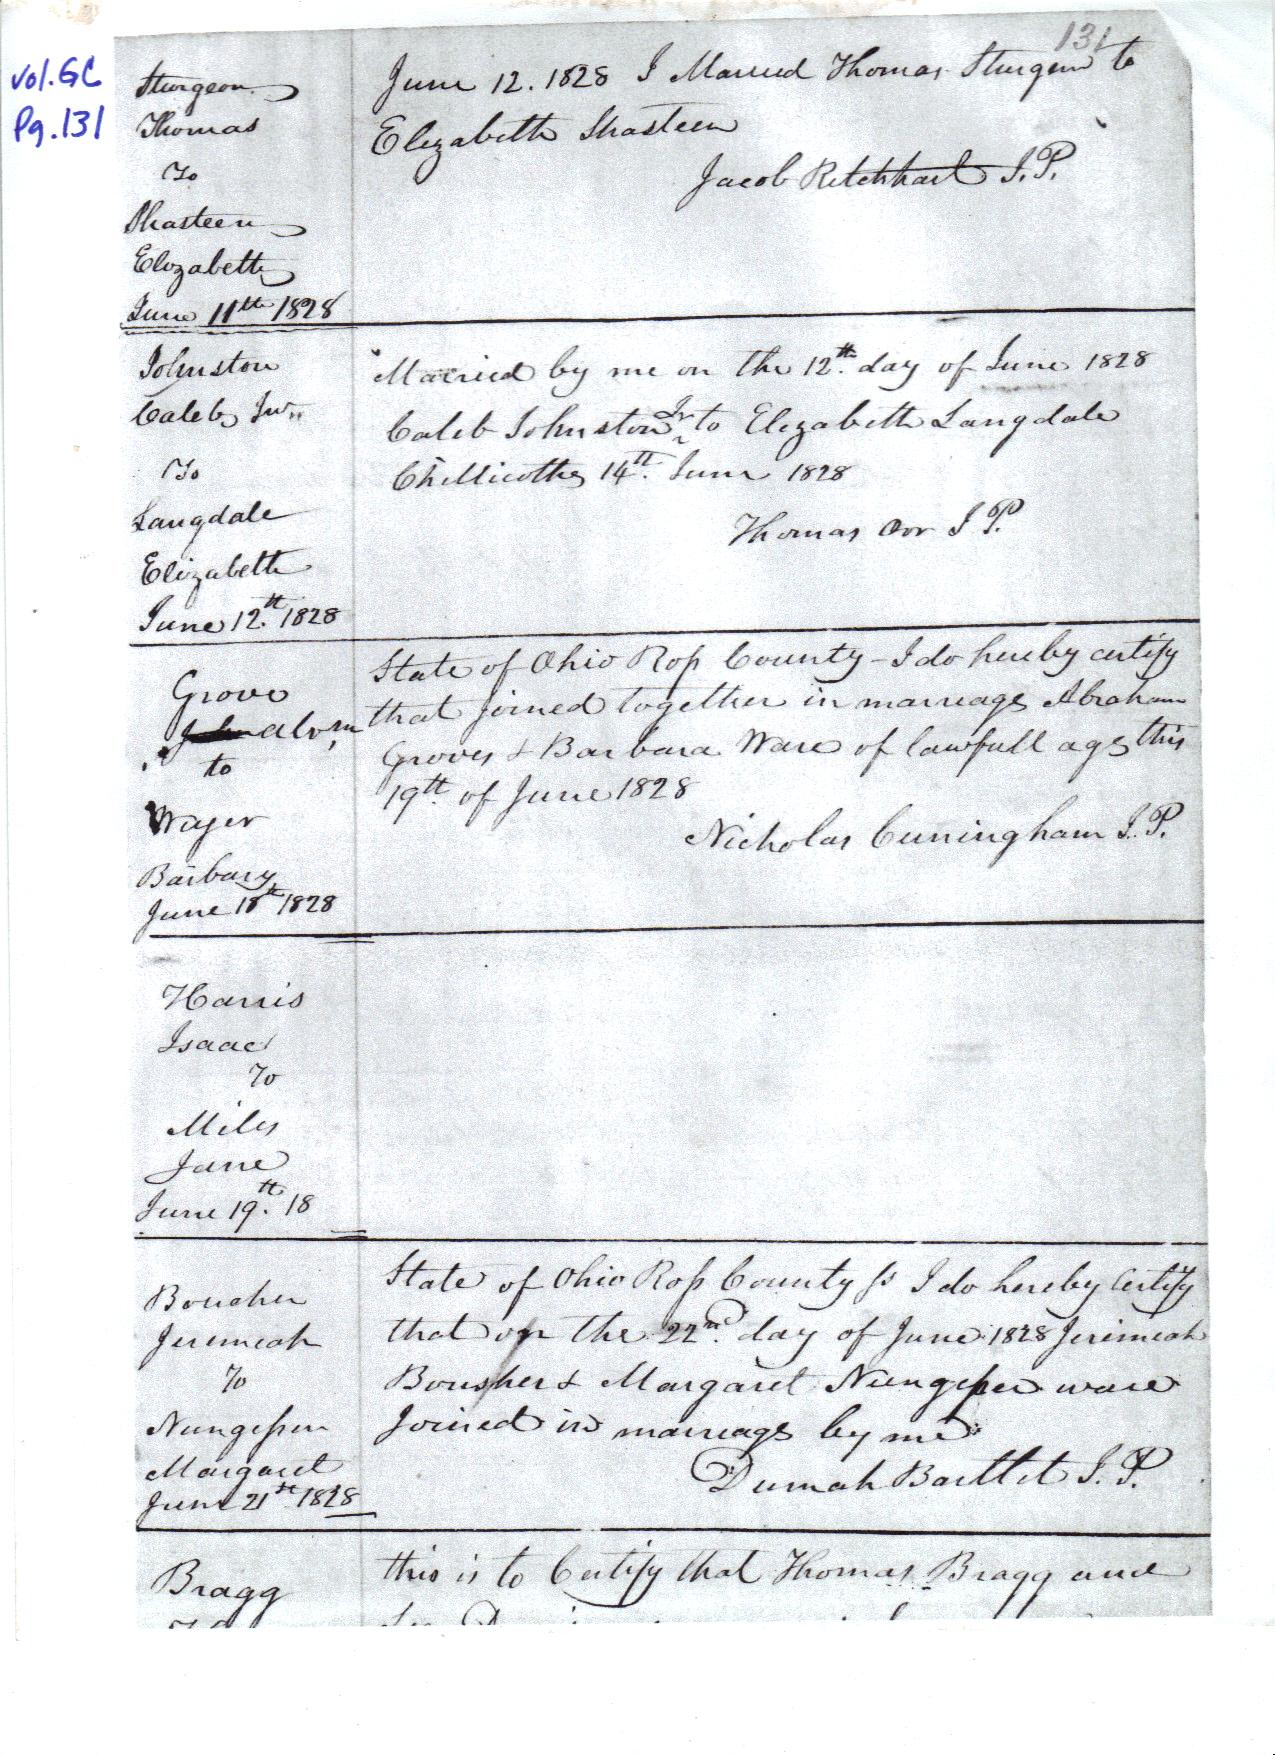 131
vol. GC
Pg. 131
Sturgeon
Thomas
To
Shasteen
Elizabeth
June 11th 1828
June 12. 1828 I Married Thomas Sturgeon to
Elizabeth Shasteen
Jacob Retchhart J.P.
Johnston
Caleb Junr
To
Langdale
Elizabeth
June 12th 1828
Married by me on the 12th day of June 1828
Caleb Johnston Jr to Elizabeth Langdale
Chillicothe 14th June 1828
Thomas Orr J P.
Grove
John Abrm
to
Weyer
Barbary
June 18th 1828
State of Ohio Ross County - I do hereby certify
that joined together in marriage Abraham
Groves & Barbara Ware of lawfull age this
19th of June 1828
Nicholas Cuningham J.P.
Harris
Isaac
To
Miles
Jane
June 19th 18
Boucher
Jeremeah
To
Nungessen
Margaret
June 21st 1828
State of Ohio Ross County ss I do hereby Certify
that on the 22nd day of June 1828 Jerimeah
Bousher & Margaret Nungesser ware
Joined in marriage by me
Dumah Bartlet J.P.
Bragg
this is to Certify that Thomas Bragg and